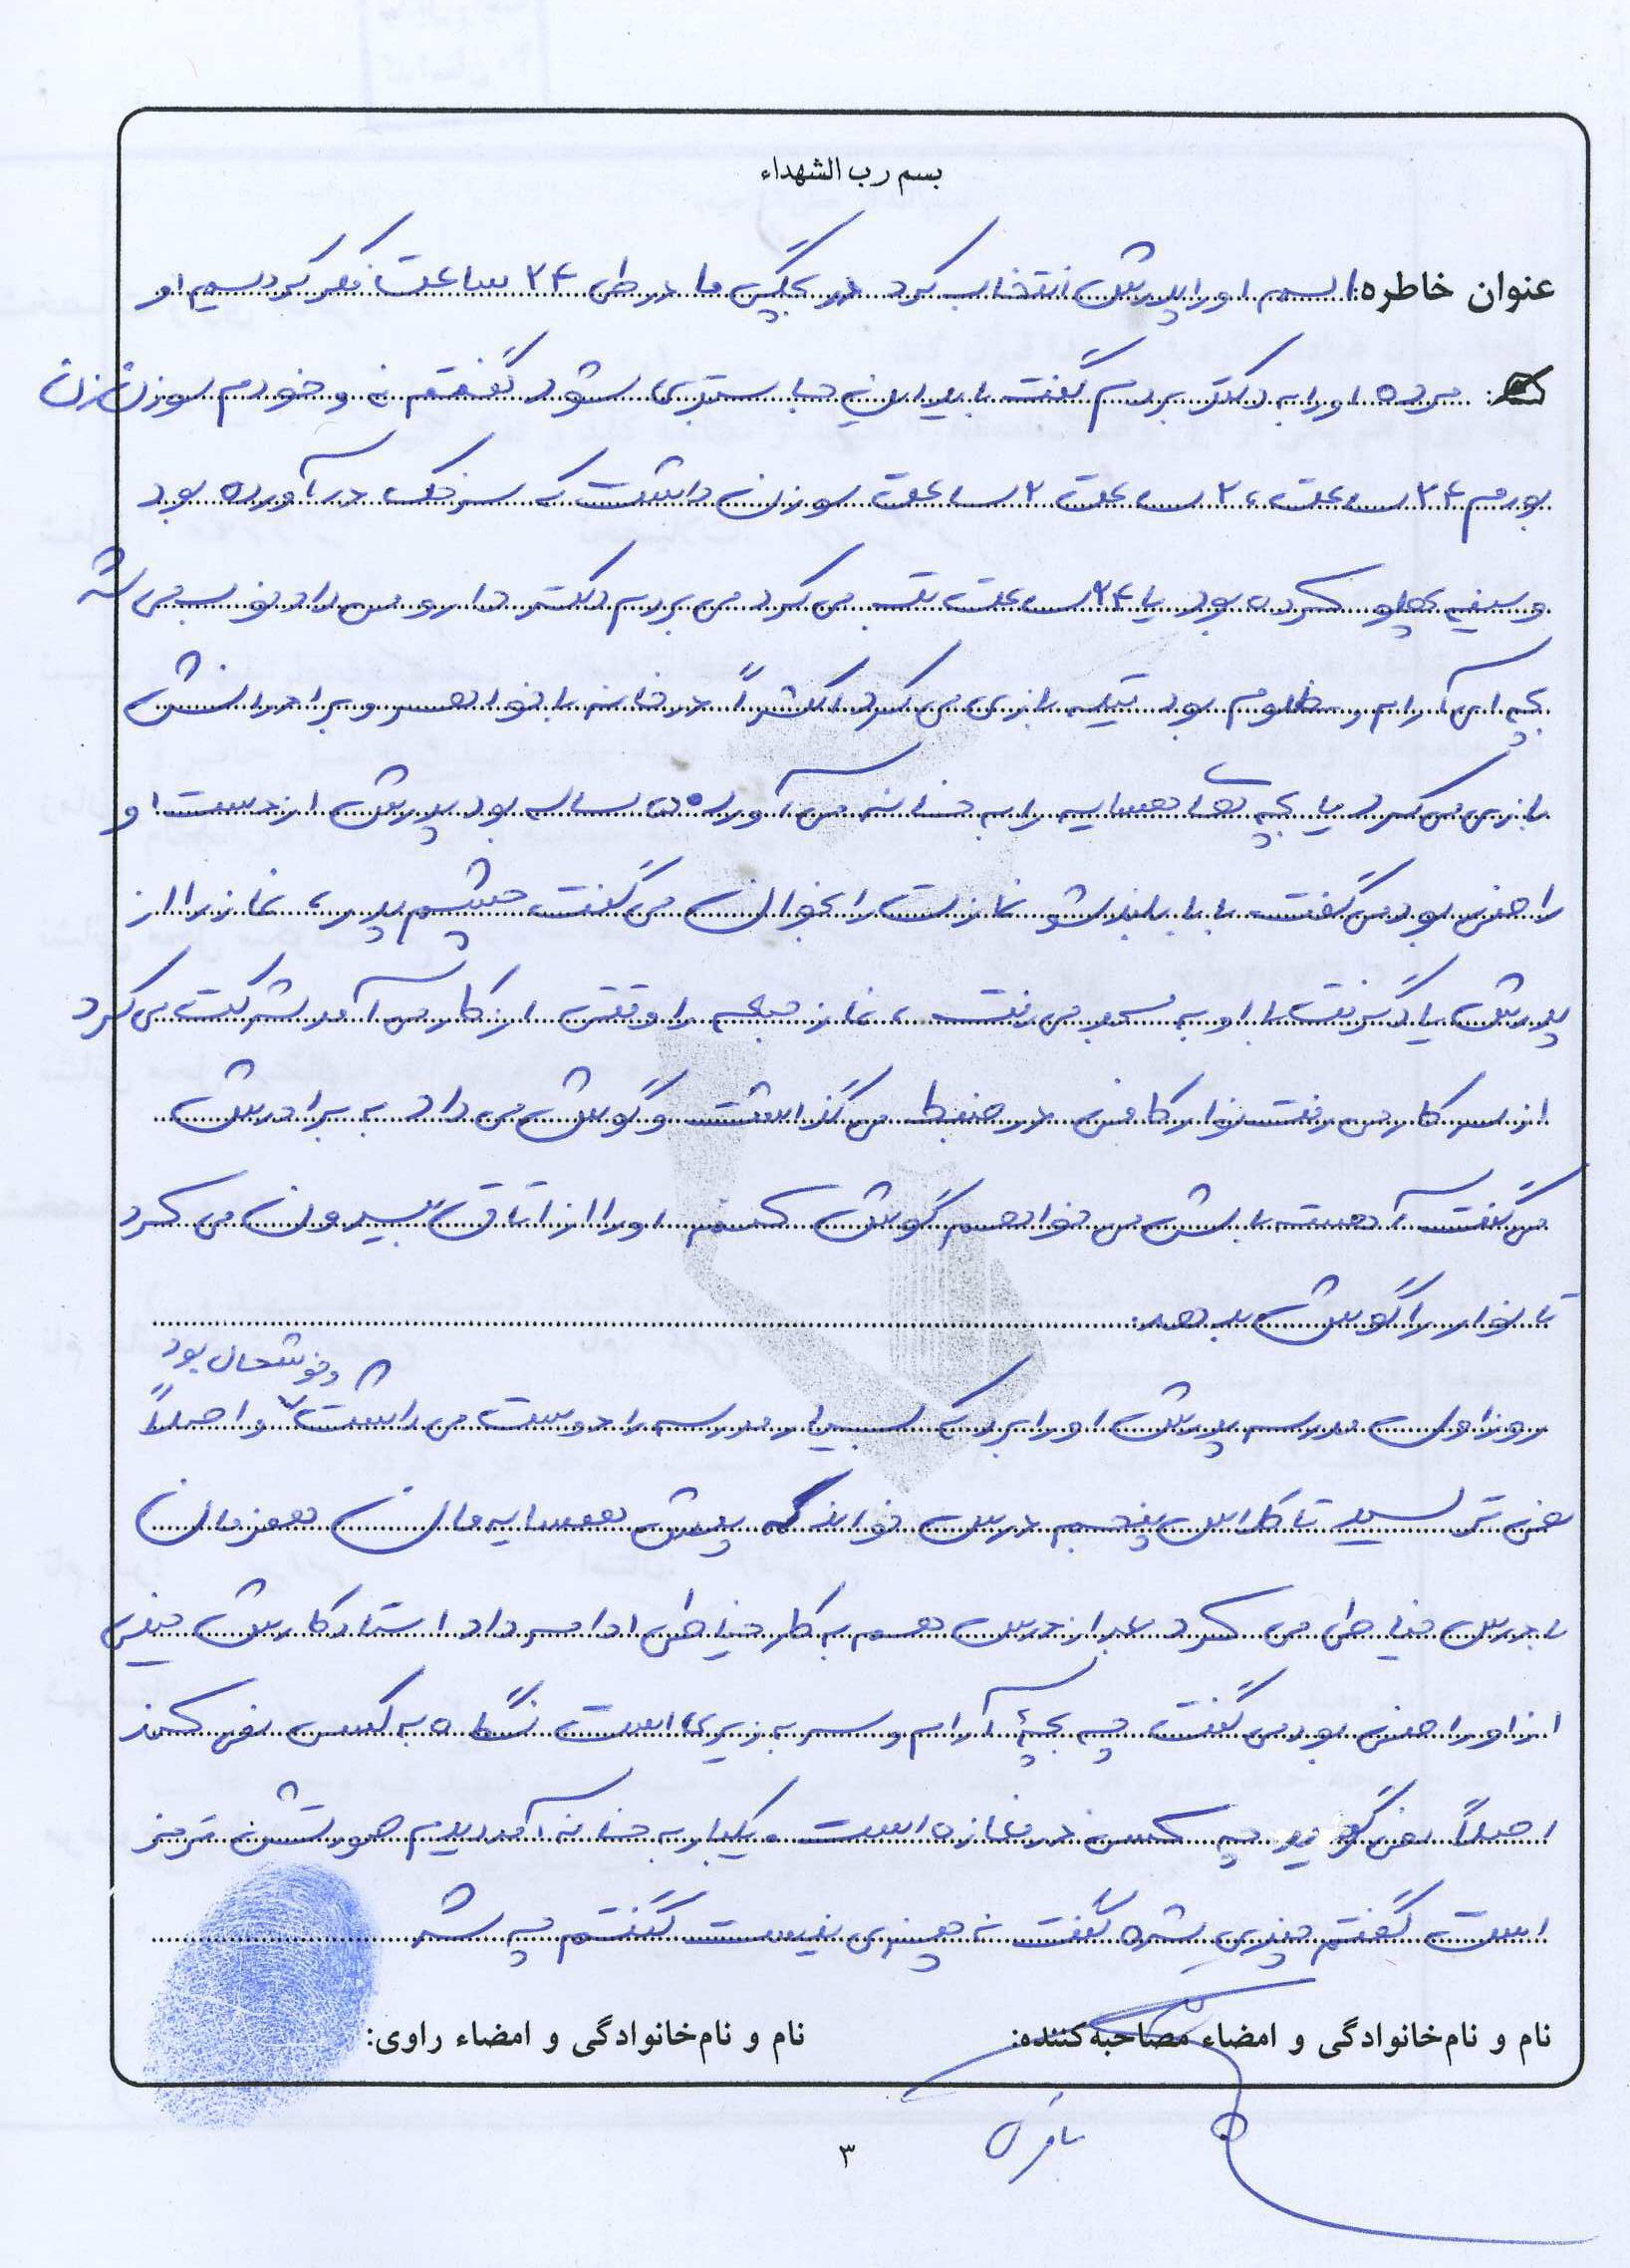 بسم رب الشهداء
عنوان خاطره: اسم او را پدرش انتخاب کرد در بچگی ما در طی ۲۴ ساعت فکر کردیم او
مرده او را به دکتر بردم گفت باید اینجا بستری شود گفتم نه و خودم سوزن زن
بودم ۲۴ ساعت، ۲ ساعت ۲ ساعت سوزن داشت که سرخک در آورده بود
و سینه پهلو کرده بود یا ۲۴ ساعت تب می کرد می بردم دکتر دارو می داد خوب می شد
بچه ای آرام و مظلوم بود تیله بازی می کرد اکثراً در خانه با خواهر و برادرانش
بازی می کرد یا بچه های همسایه را به خانه می آورد ۵ ساله بود پدرش از دست او
راضی بود می گفت بابا بلند شو نمازت را بخوان می گفت چشم پدر، نماز را از
پدرش یاد گرفت با او به مسجد می رفت، نماز جمعه را وقتی از کار می آمد شرکت می کرد
از سر کار می رفت نوار کافی در ضبط می گذاشت و گوش می داد به برادرش
می گفت آهسته باش می خواهم گوش کنم او را از اتاق بیرون می کرد
تا نوار را گوش بدهد.
و خوشحال بود
روز اول مدرسه پدرش او را برد که بسیار مدرسه را دوست می داشت و اصلاً
نمی ترسید تا کلاس پنجم درس خواند که پیش همسایه مان همزمان
با درس خیاطی می کرد بعد از درس هم به کار خیاطی ادامه داد استاد کارش خیلی
از او راضی بود می گفت چه بچۀ آرام و سر به زیری است نگاه به کسی نمی کند
اصلاً نمی گوید چه کسی در مغازه است. یکبار به خانه آمد دیدم صورتش قرمز
است گفتم چیزی شده گفت نه چیزی نیست گفتم چه شد
نام و نام‌خانوادگی و امضاء مصاحبه‌کننده:
نام و نام‌خانوادگی و امضاء راوی:
۳